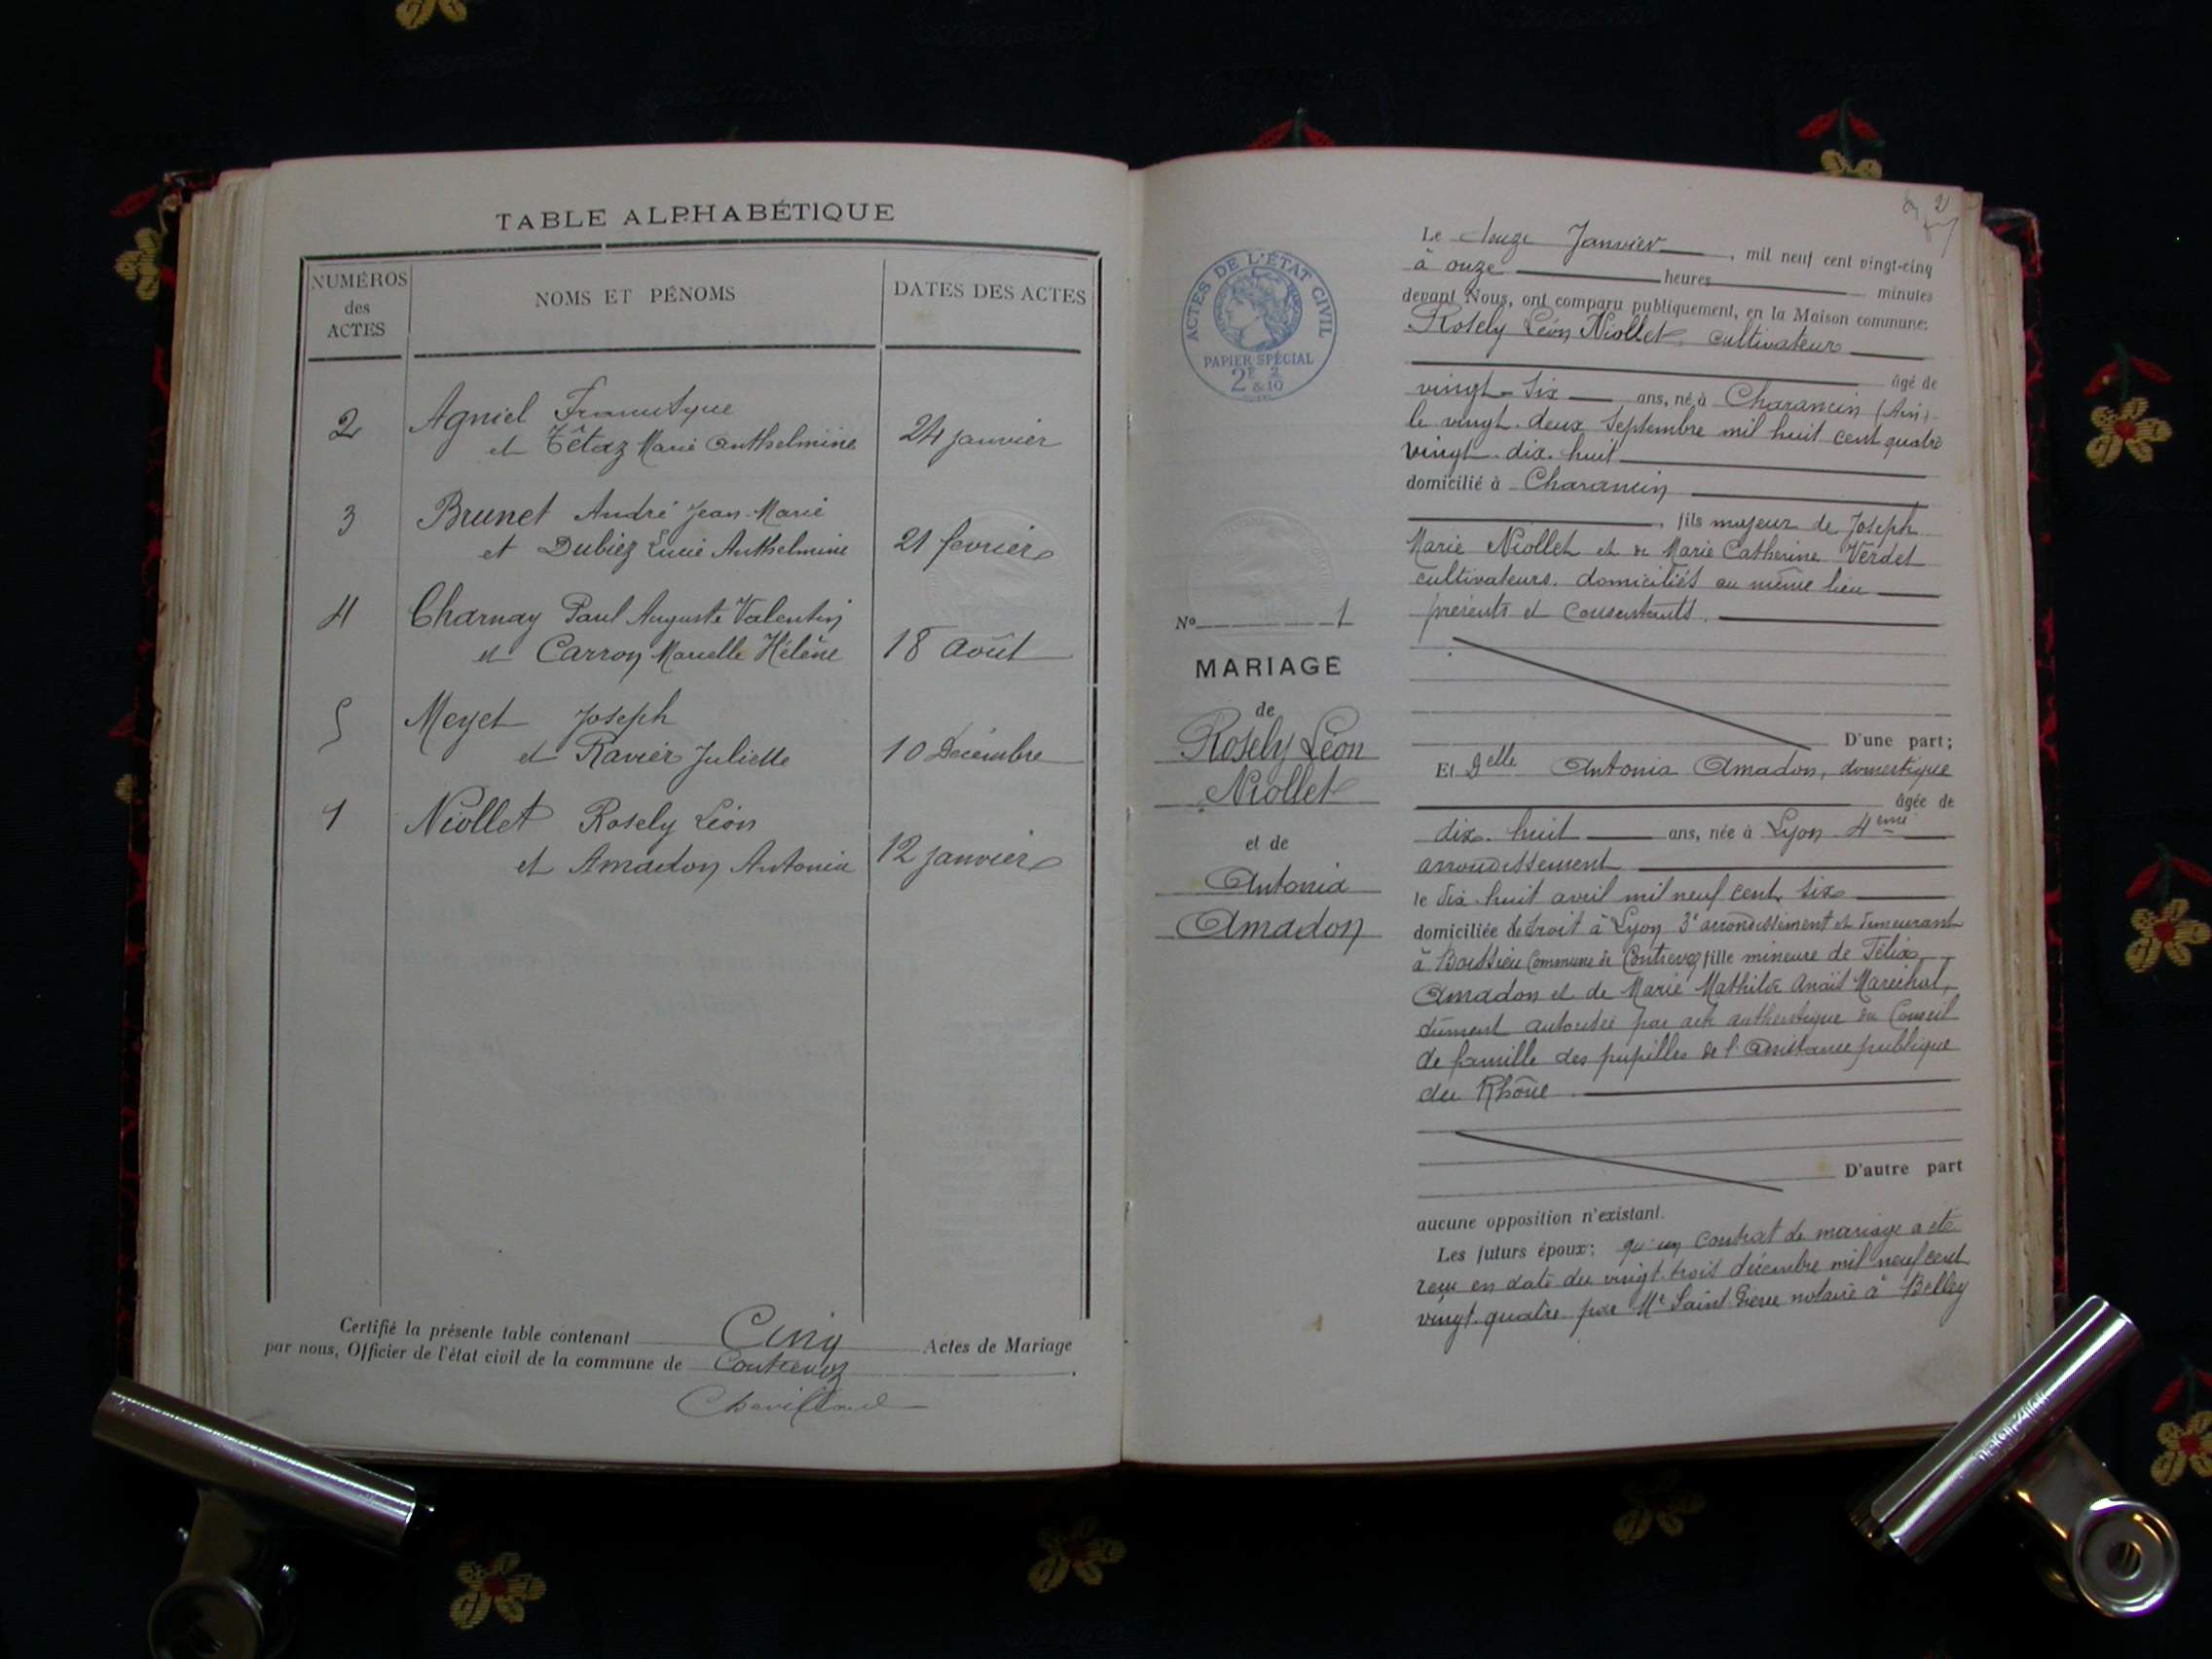 TABLE ALPHABÉTIQUE
NUMÉROS
des
ACTES
NOMS ET PÉNOMS
DATES DES ACTES
2
Agniel Francisque
et Têtaz Marie Anthelmine
24 janvier
3
Brunet André Jean-Marie
et Dubiez Lucie Anthelmine
21 fevrier
4
Charnay Paul Auguste Valentin
et Carron Marcelle Hélène
18 Août
5
Meyet Joseph
et Ravier Juliette
10 Décembre
1
Niollet Rosely Léon
et Amadon Antonia
12 janvier
Certifié la présente table contenant Cinq Actes de Mariage
par nous, Officier de l'état civil de la commune de Contrevoz
2
ACTES DE L'ÉTAT CIVIL
PAPIER SPÉCIAL
2F 2/10
No 1
MARIAGE
de
Rosely Léon
Niollet
et de
Antonia
Amadon
Le douze Janvier, mil neuf cent vingt-cinq
à onze heures minutes
devant Nous, ont comparu publiquement, en la Maison commune:
Rosely Léon Niollet cultivateur
âgé de
vingt-six ans, né à Charancin (Ain)
le vingt-deux Septembre mil huit cent quatre
vingt-dix-huit
domicilié à Charancin
, fils majeur de Joseph
Marie Niollet et de Marie Catherine Verdet
cultivateurs. domiciliés au même lieu
présents et consentants.
D'une part;
Et Delle Antonia Amadon, domestique
âgée de
dix-huit ans, née à Lyon 4eme
arrondissement
le dix-huit avril mil neuf cent six
domiciliée de droit à Lyon 3e arrondissement et demeurant
à Boissieu Commune de Contrevoz fille mineure de Félix
Amadon et de Marie Mathilde Anaïs Maréchal,
dûment autorisée par acte authentique du Conseil
de famille des pupilles de l'Assistance publique
du Rhône
D'autre part
aucune opposition n'existant.
Les futurs époux; qu'un contrat de mariage a été
reçu en date du vingt-trois décembre mil neuf cent
vingt-quatre par Me Saint-Pierre notaire à Belley